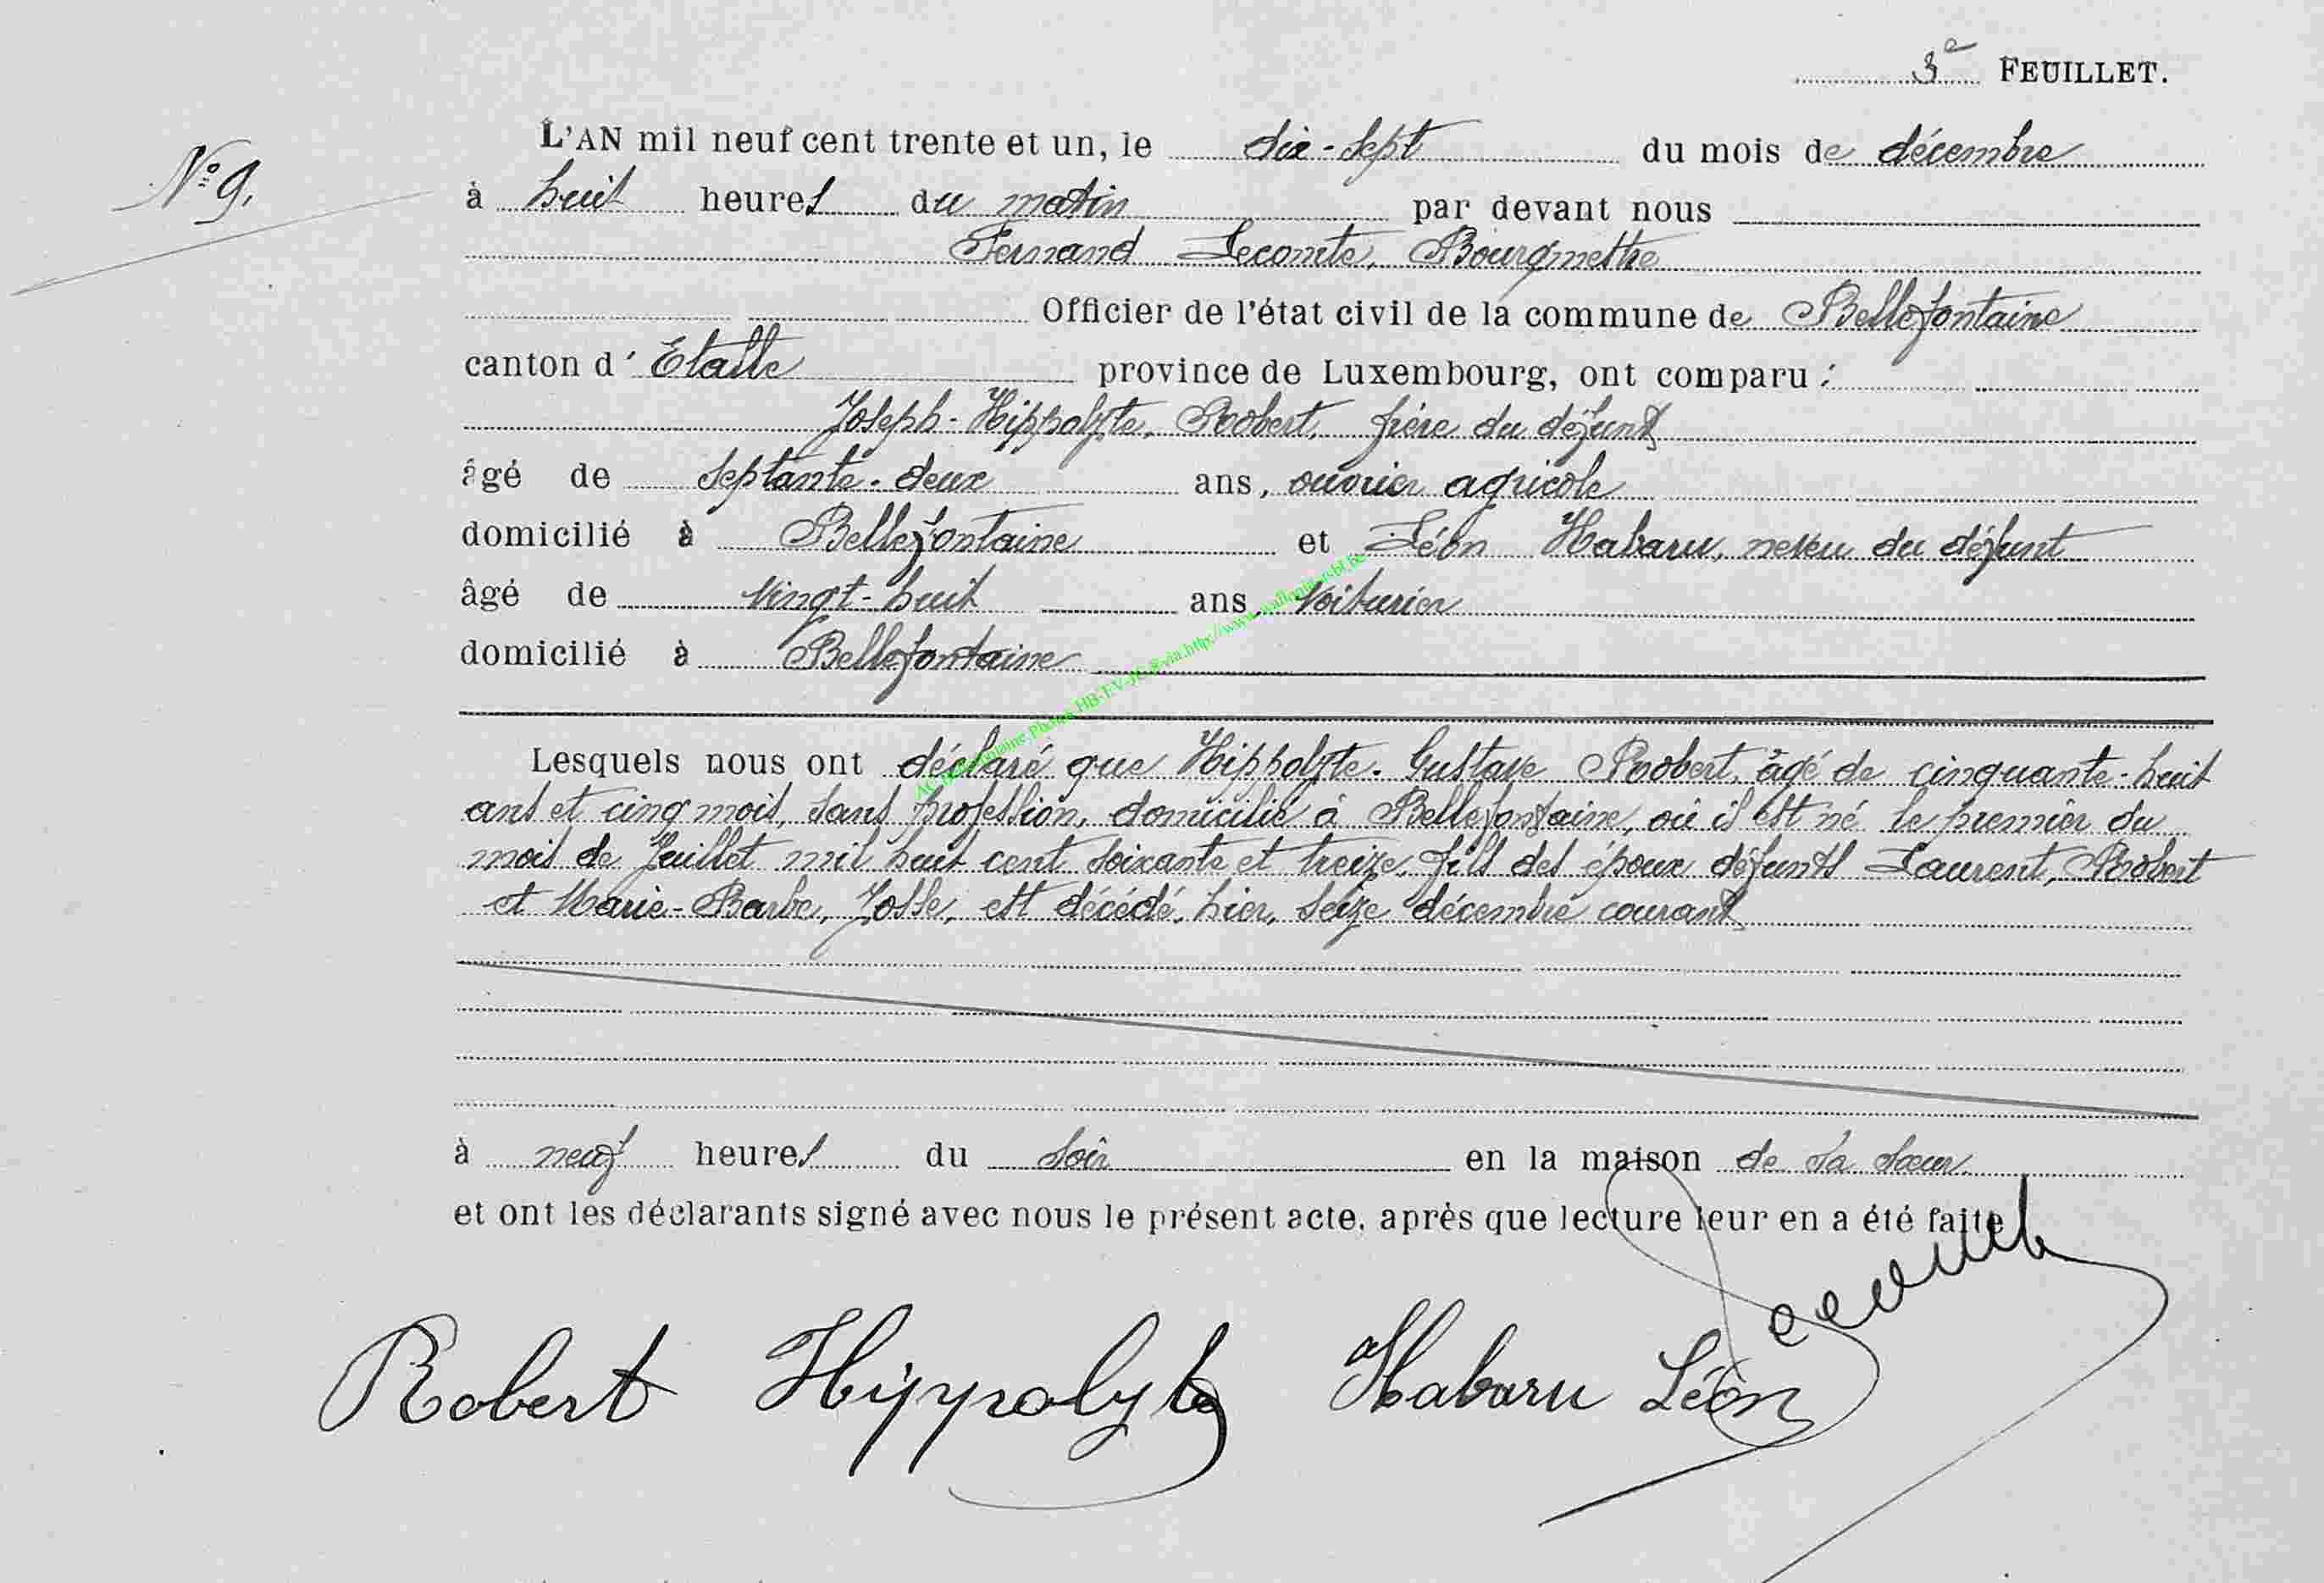 3e FEUILLET.
N° 9.
L'AN mil neuf cent trente et un, le dix-sept du mois de décembre
à huit heures du matin par devant nous
Fernand Lecomte, Bourgmettre
Officier de l'état civil de la commune de Bellefontaine
canton d' Etalle province de Luxembourg, ont comparu :
Joseph-Hippolyte, Robert, frère du défunt
âgé de septante-deux ans, ouvrier agricole
domicilié à Bellefontaine et Léon Habaru, neveu du défunt
âgé de vingt-huit ans, voiturier
domicilié à Bellefontaine
Lesquels nous ont déclaré que Hippolyte-Gustave Robert, âgé de cinquante-huit
ans et cinq mois, sans profession, domicilié à Bellefontaine, où il est né le premier du
mois de Juillet mil huit cent soixante et treize, fils des époux défunts Laurent, Robert
et Marie-Barbe, Josse, est décédé, hier, seize décembre courant
à neuf heures du soir en la maison de sa sœur
et ont les déclarants signé avec nous le présent acte, après que lecture leur en a été faite
Lecomte
Robert Hippolyte Habaru Léon